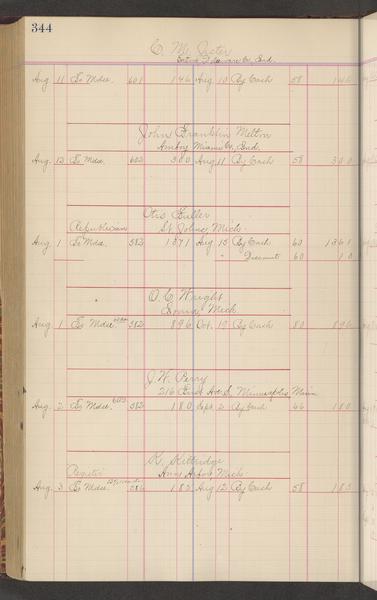 344
C. M. Jester
Delaware Co. Ind.
Aug 11 To Mdse. 601 146 Aug 10 By Cash 58 146
John Franklin Melton
Amboy Miami Co. Ind.
Aug 12 To Mdse. 602 300 Aug 11 By Cash 58 300
Otis Fuller
Republican St. Johns, Mich.
Aug 1 To Mdse. 582 1371 Aug 15 By Cash 60 1361
" Discount 60 10
O. C. Wright
Mich
Aug 1 To Mdse. 582 896 Oct. 19 By Cash 80 896
J. W. Perry
216 First Ave S. Minneapolis Minn
Aug. 2 To Mdse. 582 180 Sept 2 By Cash 66 180
K. Kittredge
Register Ann Arbor Mich
Aug. 3 To Mdse. 586 183 Aug 12 By Cash 58 183